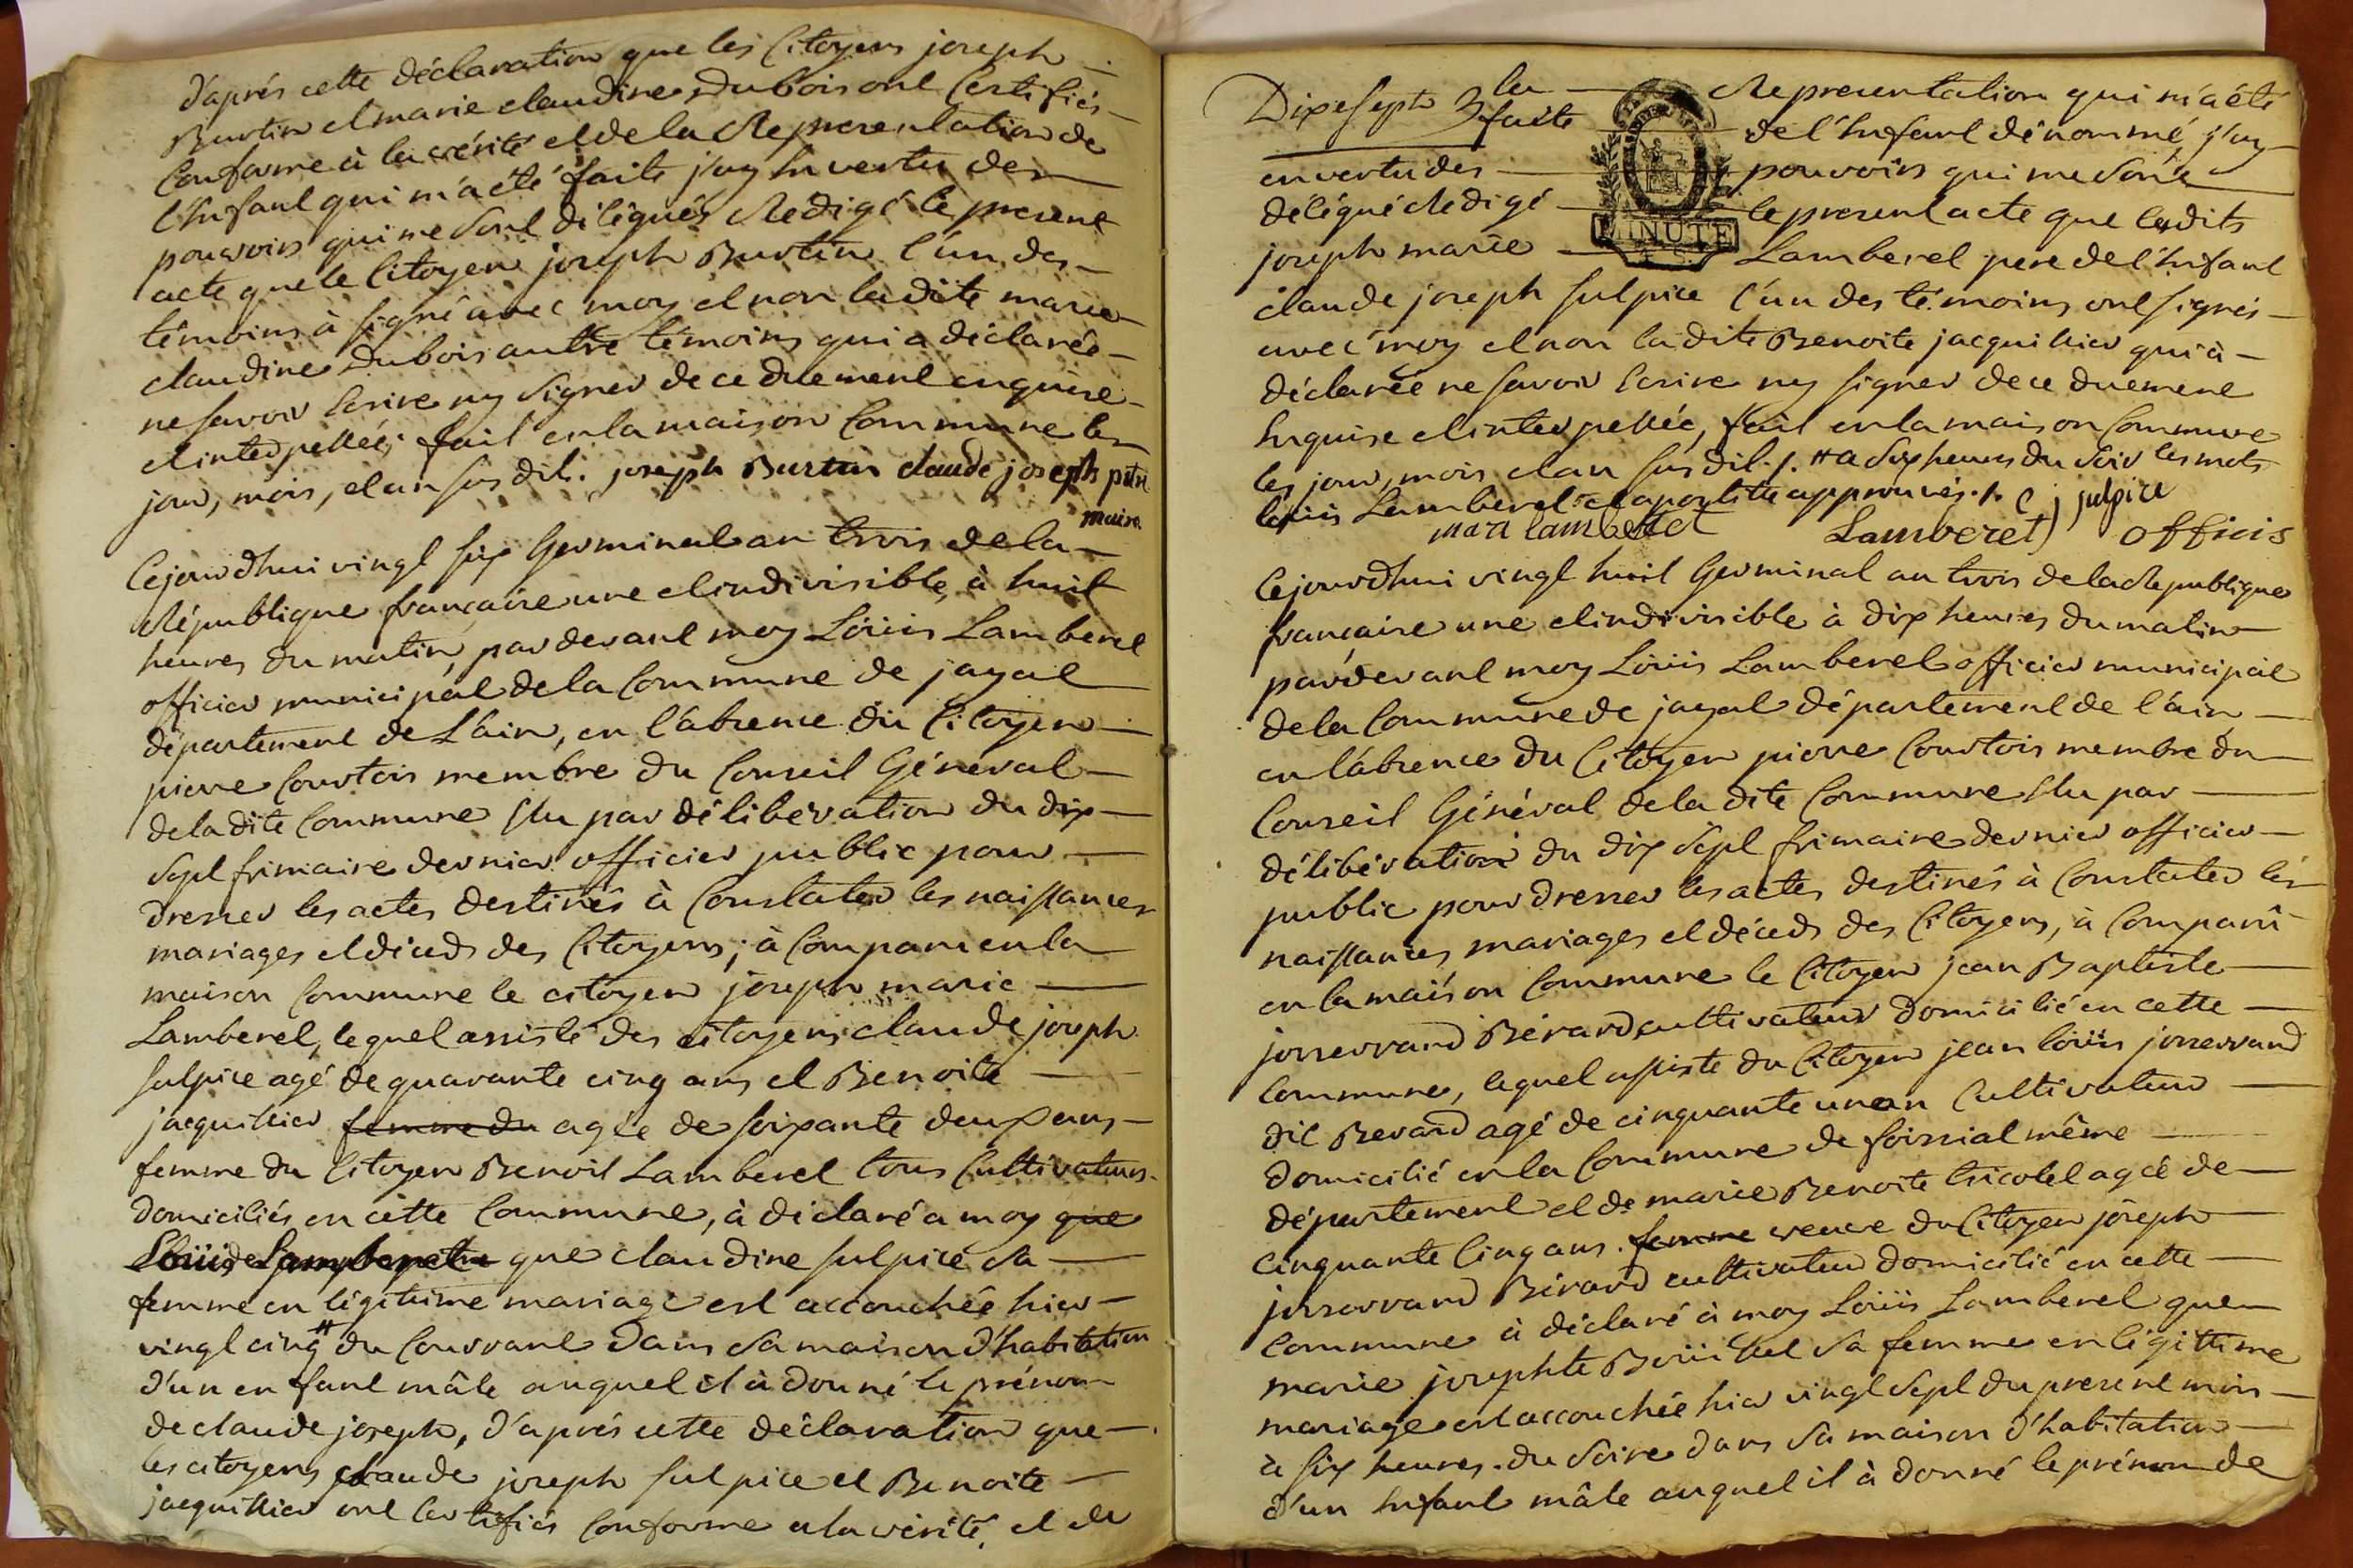 d'après cette déclaration que les Citoyens joseph
Burtin et marie claudine Dubois ont Certifiés
Conforme à la vérité et de la Representation de
l'Enfant qui m'a été faite j'ay En vertu des
pouvoirs qui me sont délégués Redigé le present
acte que le Citoyen joseph Burtin l'un des
témoins à signé avec moy et non ladite marie
claudine Dubois autre témoins qui a déclarée
ne savoir Ecrire ny signer de ce duement enquise
et interpellée; fait en la maison Commune les
jour, mois, et an susdit. joseph Burtin claude joseph
maire
Cejourdhui vingt six Germinal an trois de la
République française une et indivisible, à huit
heures du matin, pardevant moy Loüis Lamberet
officier municipal de la Commune de jayat
département de L'ain, en l'absence du Citoyen
pierre Courtois membre du Conseil Géneral
de ladite Commune Elu par délibération du dix
sept frimaire dernier officier public pour
dresser les actes destinés à Constater les naissances
mariages et décès des Citoyens; à Comparu en la
maison Commune le citoyen joseph marie
Lamberet, lequel assisté des citoyens claude joseph
sulpice agé de quarante cinq ans et Benoite
jacquillier femme du agée de soixante deux ans
femme du Citoyen Benoit Lamberet tous Cultivateurs
domiciliés en cette Commune, à déclaré a moy que
que claudine sulpice sa
femme en légitime mariage est accouchée hier
vingt cinq # du Courrant dans sa maison d'habitation
d'un enfant mâle auquel il à donné le prénom
de claude joseph, d'après cette déclaration que
les citoyens claude joseph sulpice et Benoite
jacquillier ont Certifiés Conforme a la vérité, et de
Dixesept la Representation qui m'a été
faite de l'Enfant dénommé, j'ay
en vertu des pouvoirs qui me sone
délégué Redigé le present acte que lesdits
MINUTE
joseph marie Lamberet pere de l'Enfant
claude joseph sulpice l'un des témoins ont signés
avec moy et non ladite Benoite jacquillier qui à
déclarée ne savoir Ecrire ny signer de ce duement
Enquise et interpellée, fait en la maison Commune
les jour, mois et an susdit ./. # a six heures du soir les mots
loüis Lamberet et apostille approuvés ./. c j sulpice
mari lamberet Lamberet officis
Cejourdhui vingt huit Germinal an trois de la Republique
française une et indivisible à dix heures du matin
pardevant moy Loüis Lamberet officier municipal
de la Commune de jayat département de l'ain
en l'absence du Citoyen pierre Courtois membre du
Conseil Général de ladite Commune Elu par
délibération du dix sept frimaire dernier officier
public pour dresser les actes destinés à Constater les
naissances, mariages et décès des Citoyens, à Comparû
en la maison Commune le Citoyen jean Baptiste
josserrand Bérard cultivateur domicilié en cette
Commune, lequel assiste du Citoyen jean loüis josserrand
dit Berard agé de cinquante un an Cultivateur
domicilié en la Commune de foissiat même
département et de marie Benoite tricotel agée de
cinquante Cinq ans. femme veuve du Citoyen joseph
josserrand Bérard cultivateur domicilié en cette
Commune à déclaré à moy Loüis Lamberet que
marie josephte sa femme en légittime
mariage est accouchée hier vingt sept du present mois
à six heures du soire dans sa maison d'habitation
d'un Enfant mâle auquel il à donné le prénom de